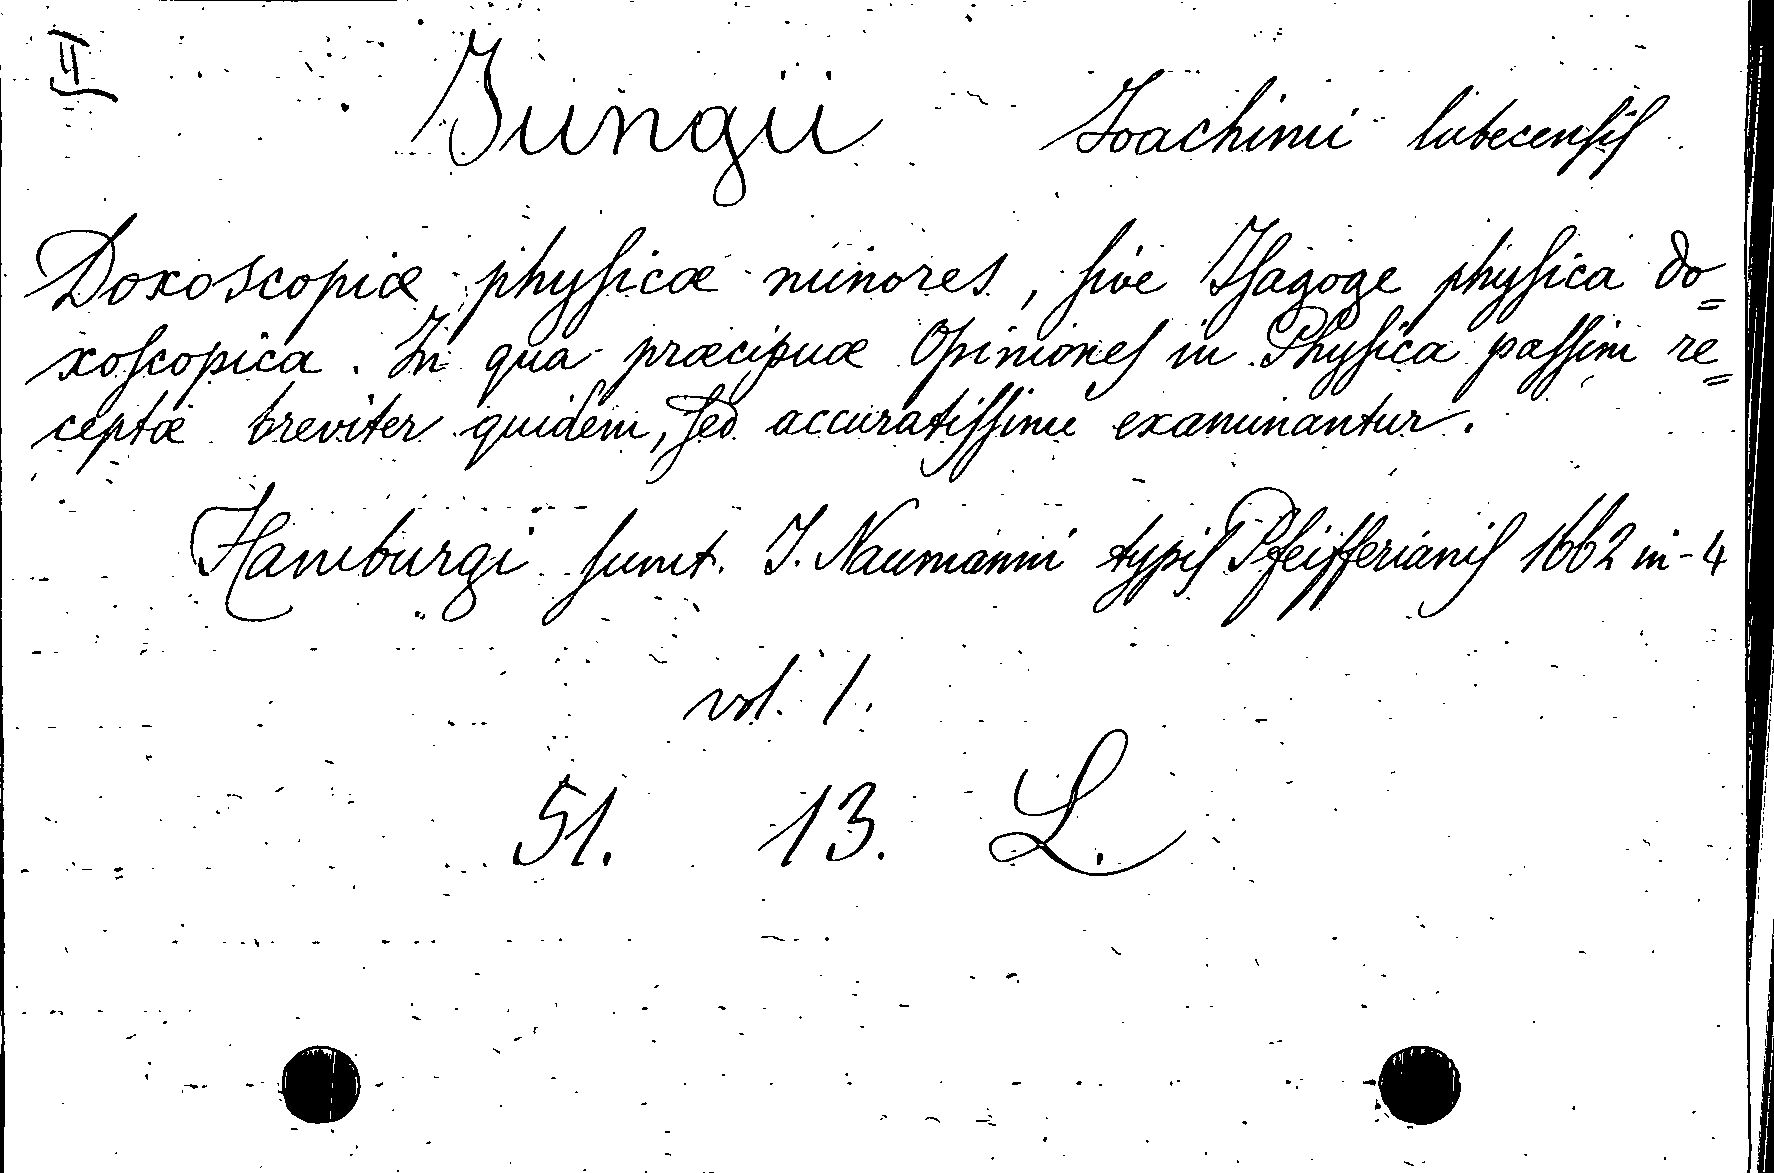 II
Jungii Joachimi lubecensis
Doxoscopiæ physicæ minores, sive Isagoge physica do=
xoscopica. In qua præcipuæ Opiniones in Physica passim re=
ceptæ breviter quidem, sed accuratissime examinantur.
Hamburgi sumt. J. Naumanni typis Pfeifferianis 1662 in-4
vol. 1.
51. 13. L.